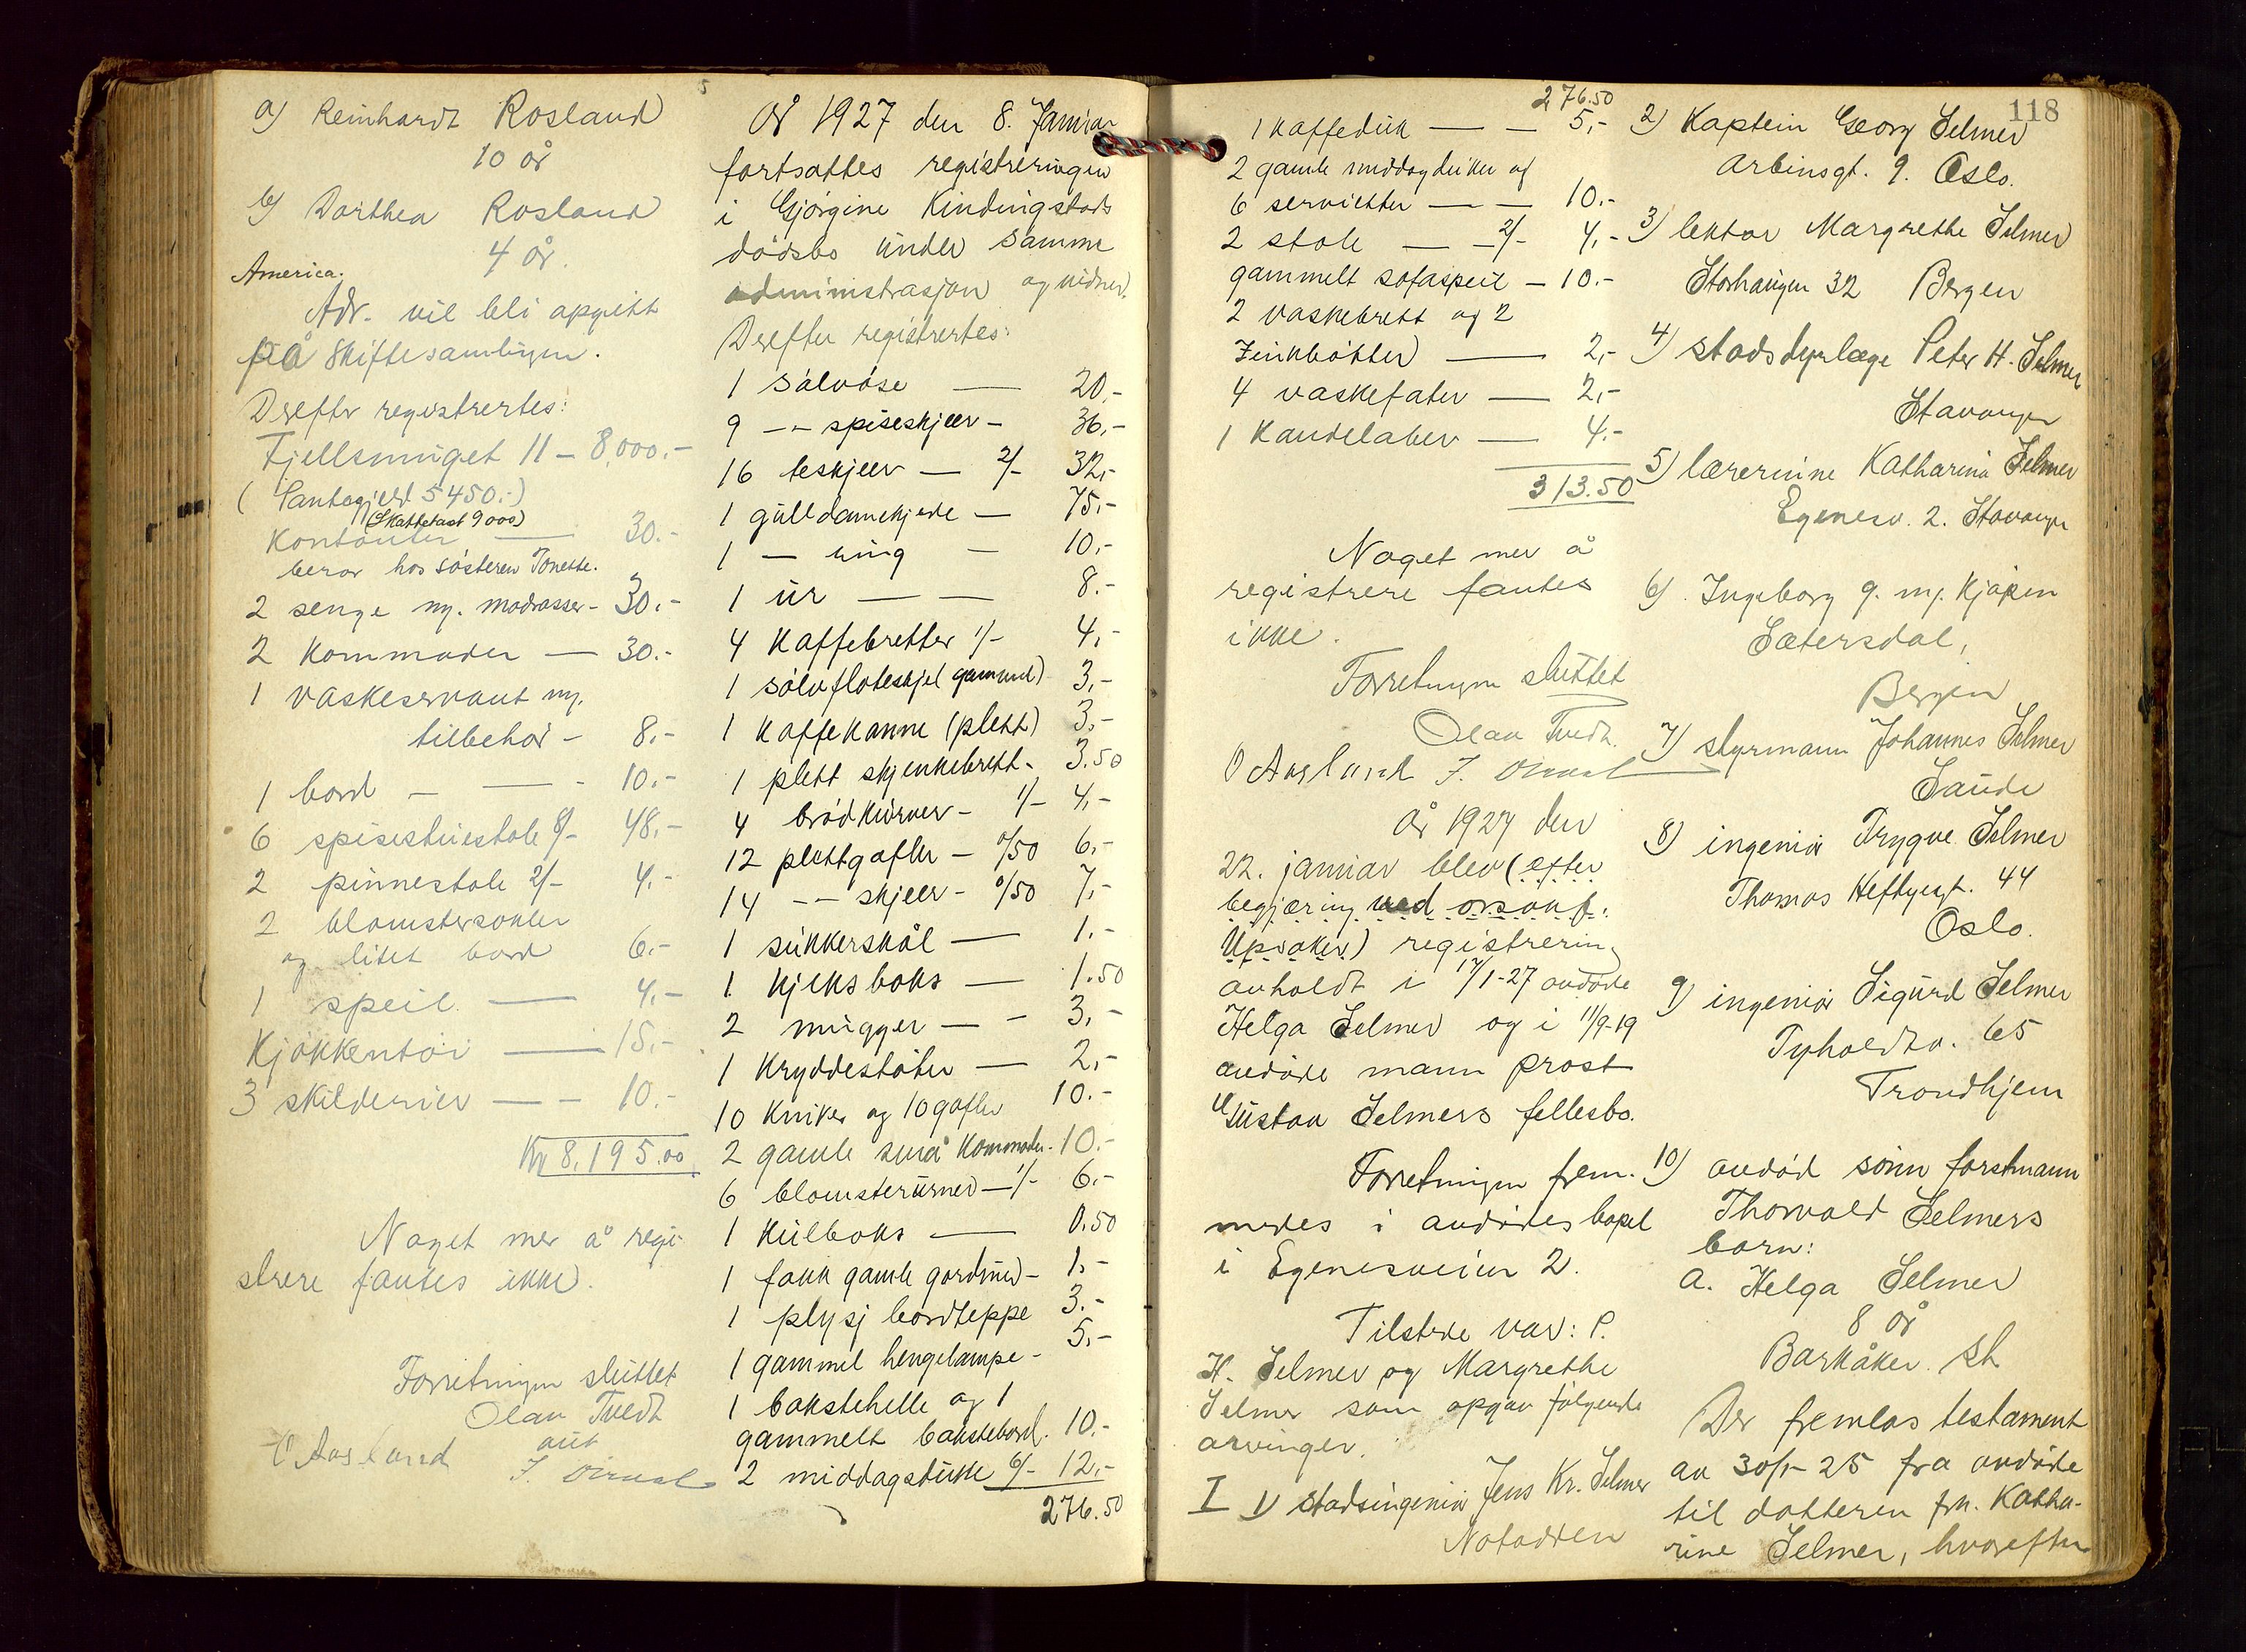 a) Reinhardt Rosland
10 år
b) Dorthea Rosland
4 år.
America.
Adr. vil bli opgitt
på skiftesamlingen.
Derefter registrertes:
Fjellsmuget 11 – 8,000.-
(Pantegjeld 5450.-)
(Skattetakst 9000)
Kontanter — 30.-
beror hos søsteren Tonette.
2 senge m. madrasser - 30.-
2 kommoder — 30.-
1 vaskeservant m.
tilbehør - 8.-
1 bord — — - 10.-
6 spisestuestole 8/- 48.-
2 pinnestole 2/- 4.-
2 blomstersokler
og litet bord 6.-
1 speil — 4.-
Kjøkkentøi — 15.-
3 skilderier — - 10.-
Kr 8,195.00
Noget mer å regi-
strere fantes ikke.
Forretningen sluttet
Olav Tvedt
aut
O Aasland J.
År 1927 den 8. Januar
fortsattes registreringen
i Gjørgine Kindingstads
dødsbo under samme
administrasjon og vidner.
Derefter registrertes:
1 sølvøse — 20.-
9 -"- spiseskjeer - 36.-
16 teskjeer — 2/- 32.-
1 gulldamekjede — 75.-
1 — ring — 10.-
1 ur — — 8.-
4 Kaffebretter 1/- 4.-
1 sølvfløteskjel gammel) 3.-
1 Kaffekanne (plett) 3.-
1 plett skjenkebrett - 3.50
4 brødkurver - 1/- 4.-
12 plettgafler - 0/50 6.-
14 -"- skjeer - 0/50 7.-
1 sukkerskål — 1.-
1 kjeksboks — 1.50
2 mugger — - 3.-
1 Kryddestøter — 2.-
10 Kniver og 10 gafler 10.-
2 gamle små Kommoder - 10.-
6 blomsterurner — 1/- 6.-
1 Kulboks — 0.50
1 fakk gamle gardiner - 1.-
1 plysj bordteppe 3.-
1 gammel hengelampe - 5.-
1 bakstehelle og 1
gammelt bakstebord. 10.-
2 middagsduke 6/- 12.-
276.50
276.50
1 kaffeduk — — 5.-
2 gamle middagduker og
6 servietter — — 10.-
2 stole — — 2/- 4.-
gammelt sofaspeil — 10.-
2 vaskebrett og 2
zinkbøtter — 2.-
4 vaskefater — 2.-
1 Kandelaber — 4.-
313.50
Noget mer å
registrere fantes
ikke.
Forretningen sluttet
Olav Tvedt.
O Aasland J.
År 1927 den
22. januar blev (efter
begjæring ved orsakf.
Upsaker) registrering
avholdt i 17/1-27 avdøde
Helga Selmer og i 11/9-19
avdøde mann prost
Gustav Selmers fellesbo.
Forretningen frem-
medes i avdødes bopel
i Egenesveien 2.
Tilstede var: P.
H. Selmer og Margrethe
Selmer som opgav følgende
arvinger.
I 1) stadsingeniør Jens Kr. Selmer
Notodden
118
2) Kaptein Georg Selmer
Arbinsgt. 9. Oslo.
3) lektor Margrethe Selmer
Storhaugen 32 Bergen
4) stadsdyrlæge Peter H. Selmer
Stavanger
5) lærerinne Katharina Selmer
Egenesv. 2. Stavanger
6) Ingeborg g. m. Kjøpm
Sætersdal,
Bergen
7) styrmann Johannes Selmer
Saude
8) ingeniør Trygve Selmer
Thomas Heftyesgt. 44
Oslo.
9) ingeniør Sigurd Selmer
Tyholdtv. 65
Trondhjem
10) avdød sønn forstmann
Thorvald Selmers
barn:
a. Helga Selmer
8 år
Barkåker st.
Der fremlas testament
av 30/1-25 fra avdøde
til datteren frk. Katha-
rine Selmer, hvorefter